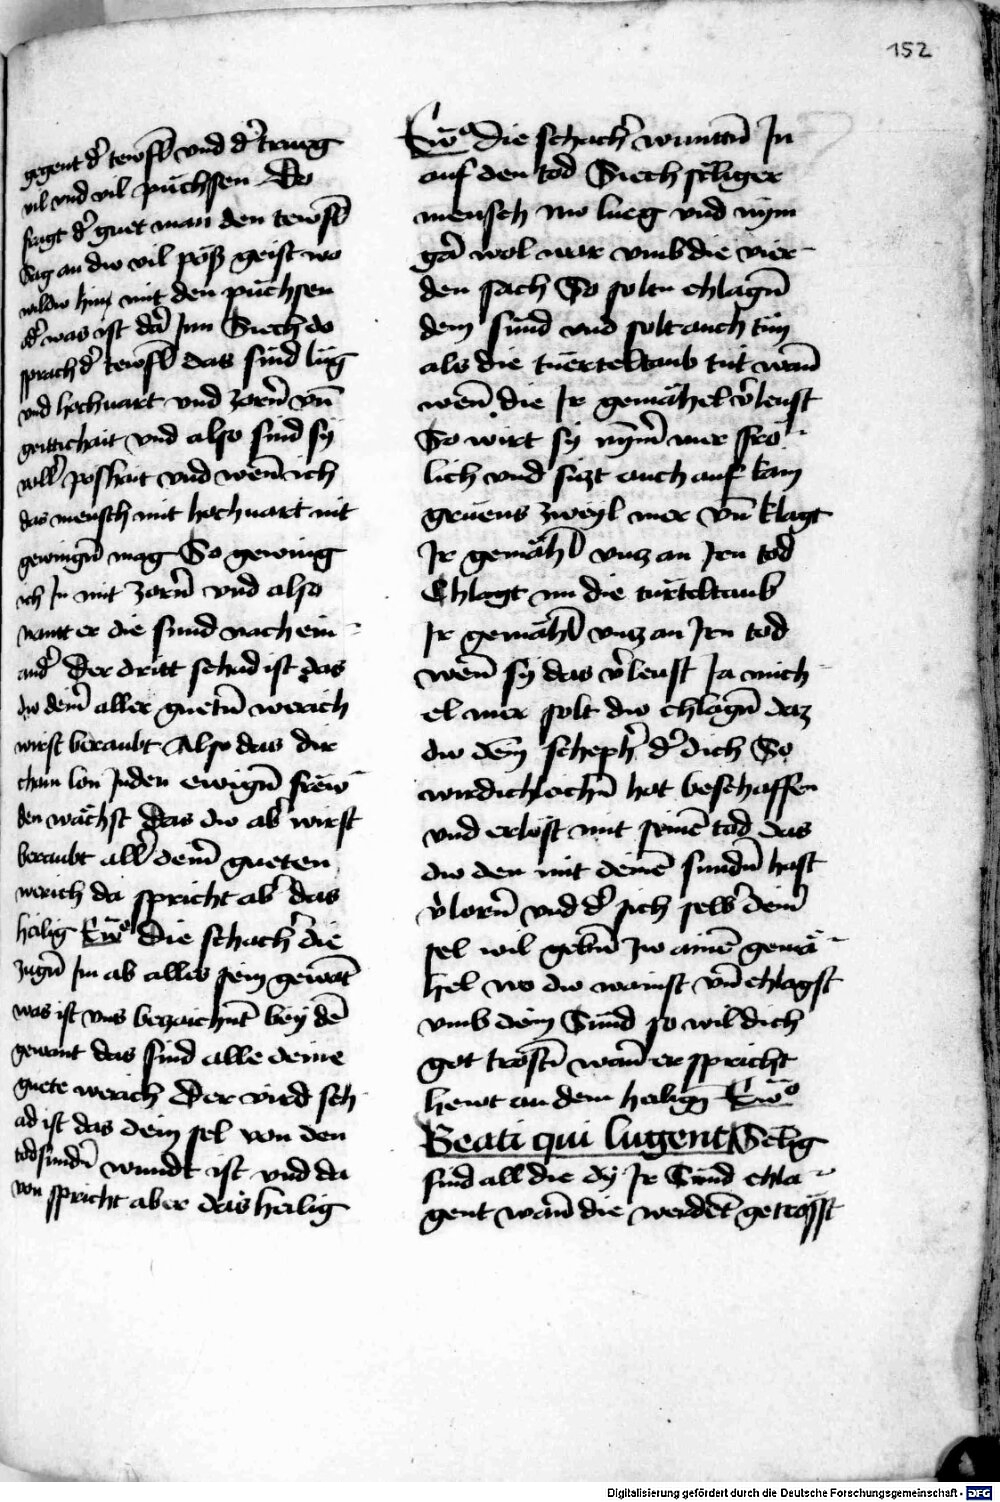 152
gegent d͛ tewfl vnd d͛ trueg
vil vnd vil püchsen Do
fragt d͛ guet man den tewfl
Sag an dw vil poͤß geist wo
wildw hin mit den püchsen
od͛ was ist dar͛ Inn Siech do
sprach d͛ tewfl das sind lüg
vnd hochuart vnd zorn͛ vn̄
geittichait vnd also sind sy
voll͛ poshait vnd wen̄ ich
das mensch mit hochuart nit
gewingn̄ mag So gewing
ich In mit zorn͛ vnd also
nantt er die sund nach ein
and͛ Der dritt schad ist das
dw deine͛ aller guetn̄ werich
wirst beraubt Also das dir
chain lon In den ewign̄ frew
den wächst Das dw ab͛ wirst
beraubt all͛ dein͛ gueten
werich da spricht ab͛ das
heilig Ewͦ die schach͛ die
zugn̄ Im ab alles sein gewāt
was ist vns bezaichnt̄ bey dē
gewant das sind alle deine
guete werich Der vird sch
ad ist das dein sel von den
todsundn̄ wundt ist vnd da
von spricht aber das heilig
Ewͦ die schach͛ wuntn̄ In
auf den tod Siech seliger
mensch nw lueg vnd nym
gar͛ wol war vmb die vier
den sach So soltu chlagn̄
dein sünd vnd solt auch tün
als die türteltaub tüt wan̄
wen̄ die Ir gemähel v͛leust
So wirt sy nym͛ mer frö
lich vnd sizt auch auf kain
gruens zweyl mer vn̄ klagt
Ir gemähl vnz an Iren tod
Chlagt nu die türteltaub
Ir gemähl vnz an Iren tod
wen̄ sy das v͛leust Ja mich
el mer solt dw chlagn̄ daz
dw dein scheph͛ d͛ dich So
wirdichleichn̄ hat beschaffen
vnd erlöst mit seinē tod das
dw den mit deinē sundn̄ hast
v͛lorn̄ vnd d͛ sich selb͛ dein͛
sel wil gebn̄ zw ainē gemä
hel wo dw wainst vn̄ chlagst
vmb dein Sünd so wil dich
got tröstn̄ wan̄ er spricht
hewt an dem heilign̄ Ewͦ
Beati qui lugent Selig
sind all die dy Ir Sünd chla
gent wan̄ die werdēt getröst
Digitalisierung gefördert durch die Deutsche Forschungsgemeinschaft - DFG